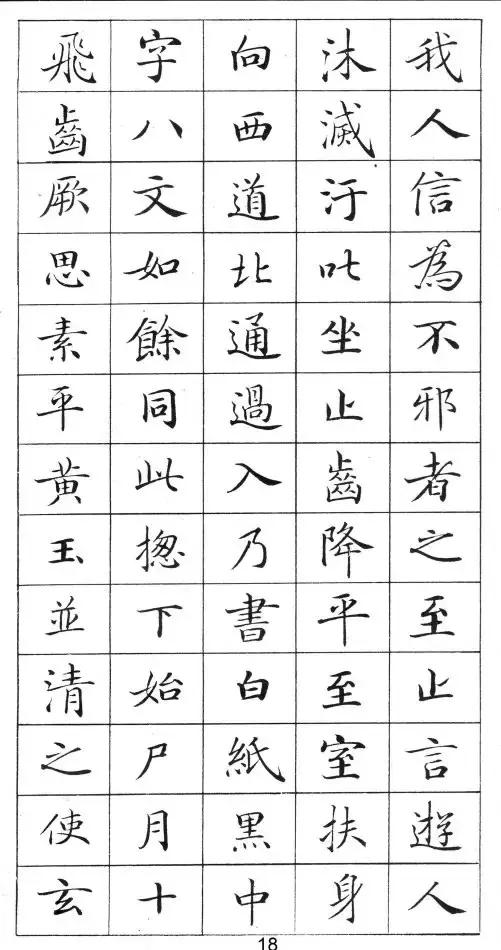 我人信為不邪者之至止言遊人
沐滅汙叱坐止齒降平至室扶身
向西道北通過入乃書白紙黑中
字八文如餘同此揔下始尸月十
飛齒厥思素平黄玉並清之使玄
18